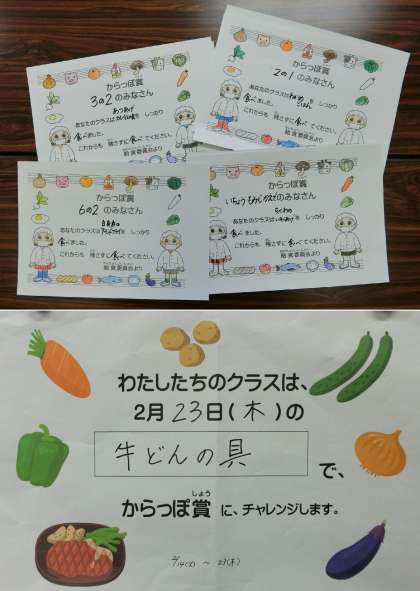 からっぽ賞
3の2のみなさん
あつあげ
あなたのクラスは をしっかり
食べました。
これからも 残さずに食べてください。
給食委員会より
からっぽ賞
2の1のみなさん
あなたのクラスは を しっかり
食べました。
これからも 残さずに食べてください。
給食委員会より
からっぽ賞
6の2のみなさん
白身魚の
あなたのクラスは を しっかり
食べました。
これからも 残さずに食べてください。
給食委員会より
からっぽ賞
いちょう もみじクラスのみなさん
ちくわの
あなたのクラスは いそべあげを しっかり
食べました。
これからも 残さずに食べてください。
給食委員会より
わたしたちのクラスは、
2月23日(木)の
牛どんの具
で、
しょう
からっぽ賞に、チャレンジします。
2/14(火)～23(木)